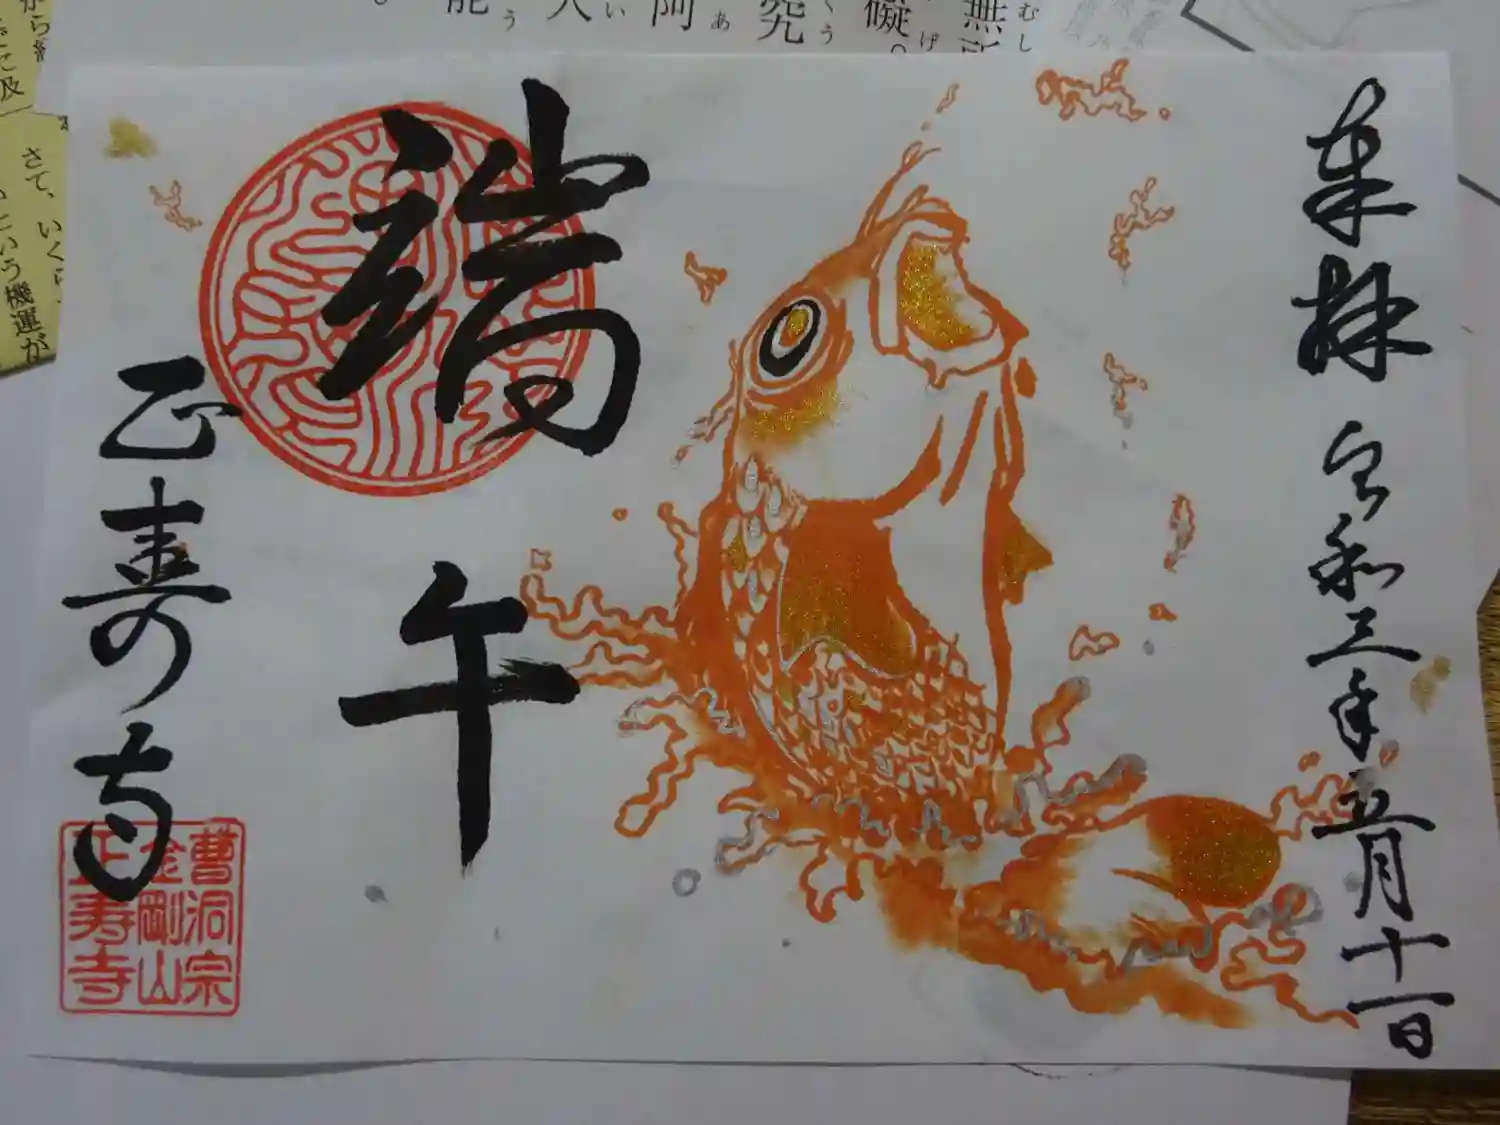 奉拝 令和三年五月十一日
端午
正寿寺
曹洞宗
金剛山
正寿寺
さて、いくら
という機運が
から
に及
無
むし
礙。
げ
究
くう
阿
あ
い
能
う